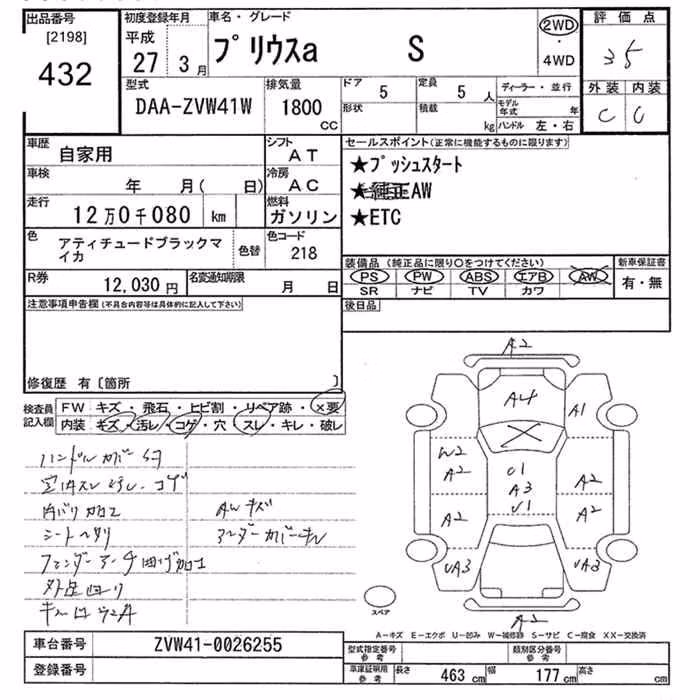 出品番号
[2198]
432
初度登録年月
平成
27 3月
車名・グレード
プリウスa S
2WD
・
4WD
評価点
3.5
型式
DAA-ZVW41W
排気量
1800
CC
ドア 5
定員 5人
形状
積載 kg
ディーラー・並行
モデル年式 年
ハンドル 左・右
外装 内装
C C
車歴
自家用
シフト
AT
車検
年 月( 日)
冷房
AC
走行
12万0千080 km
燃料
ガソリン
色
アティチュードブラックマイカ
色替
色コード
218
R券
12,030円
名変通知期限
月 日
セールスポイント(正常に機能するものに限ります)
★プッシュスタート
★純正AW
★ETC
装備品(純正品に限り○をつけてください)
PS PW ABS エアB AW
SR ナビ TV カワ
新車保証書
有・無
後日品
注意事項申告欄(不具合内容等は具体的に記入して下さい)
修復歴 有〔箇所 〕
検査員記入欄
FW キズ・飛石・ヒビ割・リペア跡・×要
内装 キズ・汚レ・コゲ・穴・スレ・キレ・破レ
ハンドルカバー
コゲ
内バリ加工 AWキズ
シートヘタリ アンダーカバーキレ
フェンダーアーチ曲げ加工
A2
A4
A1
W2
A2
U1
A3
U1
A2
A2
A2
UA3
UA3
A2
スペア
A－キズ E－エクボ U－凹み W－補修跡 S－サビ C－腐食 XX－交換済
車台番号
ZVW41-0026255
登録番号
型式指定番号
参考
類別区分番号
参考
車庫証明用
参考
長さ 463 cm 幅 177 cm 高さ cm